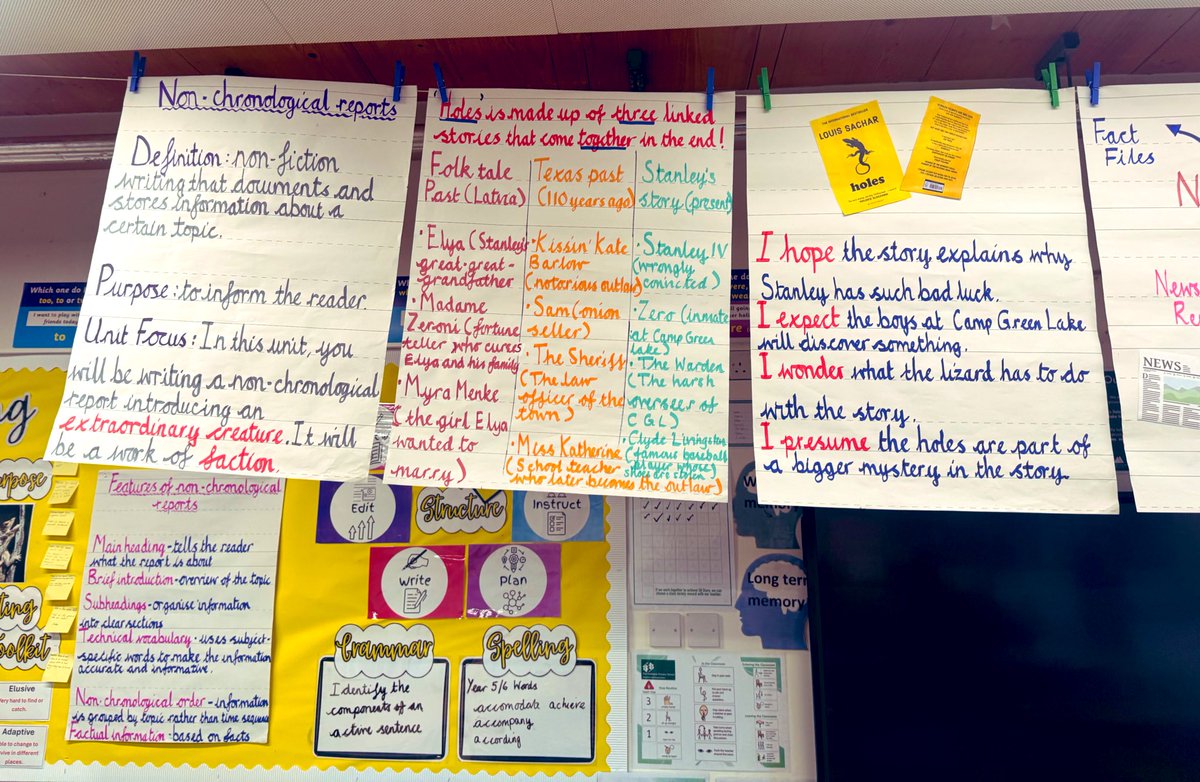 Non-chronological reports
Definition: non-fiction
writing that documents and
stores information about a
certain topic.
Purpose: to inform the reader.
Unit Focus: In this unit, you
will be writing a non-chronological
report introducing an
extraordinary creature. It will
be a work of faction.
'Holes' is made up of three linked
stories that come together in the end!
Folk tale
Past (Latvia)
• Elya (Stanley's
great-great-
grandfather
• Madame
Zeroni (fortune
teller who curses
Elya and his family)
• Myra Menke
(the girl Elya
wanted to
marry)
Texas past
(110 years ago)
• Kissin' Kate
Barlow
(notorious outlaw)
• Sam (onion
seller)
• The Sheriff
(The law
officer of the
town)
• Miss Katherine
(School teacher
who later becomes the outlaw)
Stanley's
story (present)
• Stanley IV
(wrongly
convicted)
• Zero (inmate
at Camp Green
lake)
• The Warden
(The harsh
overseer of
CGL)
• Clyde Livingston
(famous baseball
player whose
shoes are stolen)
LOUIS SACHAR
holes
I hope the story explains why
Stanley has such bad luck.
I expect the boys at Camp Green Lake
will discover something.
I wonder what the lizard has to do
with the story.
I presume the holes are part of
a bigger mystery in the story.
Fact
Files
N
News
Re
NEWS
Which one do
too, to or t
I want to play wi
friends today
to
ng
Purpose
Features of non-chronological
reports
Main heading - tells the reader
what the report is about
Brief introduction - overview of the topic
Subheadings - organise information
into clear sections
Technical vocabulary - uses subject-
specific words to make the information
accurate and informative
Non-chronological order - information
is grouped by topic rather than time sequence
Factual information - based on facts
Elusive
Very hard to find or
catch.
Adaptive
able to change to
survive in different
places
Edit
Structure
Instruct
Write
Plan
Grammar
I identify the
components of an
active sentence
Spelling
Year 5/6 Words
accomodate achieve
accompany
according
Long term
memory
3
2
1